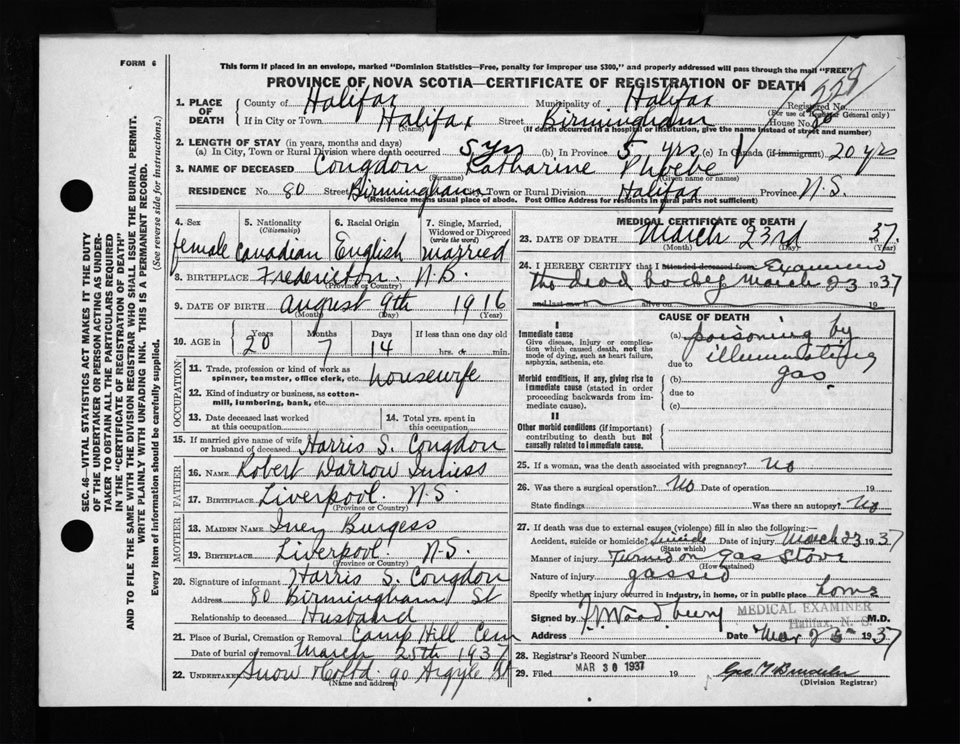 FORM 6
This form if placed in an envelope, marked "Dominion Statistics—Free, penalty for improper use $300," and properly addressed will pass through the mail "FREE"
PROVINCE OF NOVA SCOTIA—CERTIFICATE OF REGISTRATION OF DEATH
SEC. 46—VITAL STATISTICS ACT MAKES IT THE DUTY
OF THE UNDERTAKER OR PERSON ACTING AS UNDER-
TAKER TO OBTAIN ALL THE PARTICULARS REQUIRED
IN THE "CERTIFICATE OF REGISTRATION OF DEATH"
AND TO FILE THE SAME WITH THE DIVISION REGISTRAR WHO SHALL ISSUE THE BURIAL PERMIT.
WRITE PLAINLY WITH UNFADING INK. THIS IS A PERMANENT RECORD.
Every item of Information should be carefully supplied. (See reverse side for instructions.)
1. PLACE OF DEATH County of Halifax Municipality of Halifax Registered No.
(For use of Registrar General only)
If in City or Town Halifax Street Birmingham House No. 80
(Name) (If death occurred in a hospital or institution, give the name instead of street and number)
2. LENGTH OF STAY (in years, months and days)
(a) In City, Town or Rural Division where death occurred 5 yrs (b) In Province 5 yrs (c) In Canada (if immigrant) 20 yrs
3. NAME OF DECEASED Congdon Katharine Phoebe
(Surname) (Given name or names)
RESIDENCE No. 80 Street Birmingham City, Town or Rural Division Halifax Province N.S.
(Residence means usual place of abode. Post Office Address for residents in rural parts not sufficient)
4. Sex 5. Nationality (Citizenship) 6. Racial Origin 7. Single, Married, Widowed or Divorced (write the word)
female Canadian English married
8. BIRTHPLACE Fredericton. N.B.
(Province or Country)
9. DATE OF BIRTH August 9th 1916
(Month) (Day) (Year)
10. AGE in Years Months Days If less than one day old
20 7 14 hrs. or min.
OCCUPATION
11. Trade, profession or kind of work as spinner, teamster, office clerk, etc. housewife
12. Kind of industry or business, as cotton-mill, lumbering, bank, etc.
13. Date deceased last worked at this occupation 14. Total yrs. spent in this occupation
15. If married give name of wife or husband of deceased Harris S. Congdon
FATHER
16. NAME Robert Darrow
17. BIRTHPLACE Liverpool. N.S.
(Province or Country)
MOTHER
18. MAIDEN NAME Iney Burgess
19. BIRTHPLACE Liverpool N.S.
(Province or Country)
20. Signature of informant Harris S. Congdon
Address 80 Birmingham St
Relationship to deceased Husband
21. Place of Burial, Cremation or Removal Camp Hill Cem
Date of burial or removal March 25th 1937
22. UNDERTAKER Snow & Co Ltd 90 Argyle St
(Name and address)
MEDICAL CERTIFICATE OF DEATH
23. DATE OF DEATH March 23rd 37.
(Month) (Day) (Year)
24. I HEREBY CERTIFY that I attended deceased from Examined
the dead body March 23 1937
and last saw h alive on 19
CAUSE OF DEATH
I
Immediate cause
Give disease, injury or complication which caused death, not the mode of dying, such as heart failure, asphyxia, asthenia, etc.
(a) poisoning by
due to illuminating
gas.
Morbid conditions, if any, giving rise to immediate cause (stated in order proceeding backwards from immediate cause).
(b)
due to
(c)
II
Other morbid conditions (if important) contributing to death but not causally related to immediate cause.
25. If a woman, was the death associated with pregnancy? No
26. Was there a surgical operation? No Date of operation 19
State findings Was there an autopsy? No
27. If death was due to external causes (violence) fill in also the following:—
Accident, suicide or homicide? Suicide Date of injury March 23 1937
(State which)
Manner of injury Turned on gas stove
(How sustained)
Nature of injury gassed
Specify whether injury occurred in industry, in home, or in public place home
Signed by Woodbury M.D.
MEDICAL EXAMINER
Halifax, N. S.
Address Date Mar 25 1937
28. Registrar's Record Number
29. Filed MAR 30 1937
(Division Registrar)